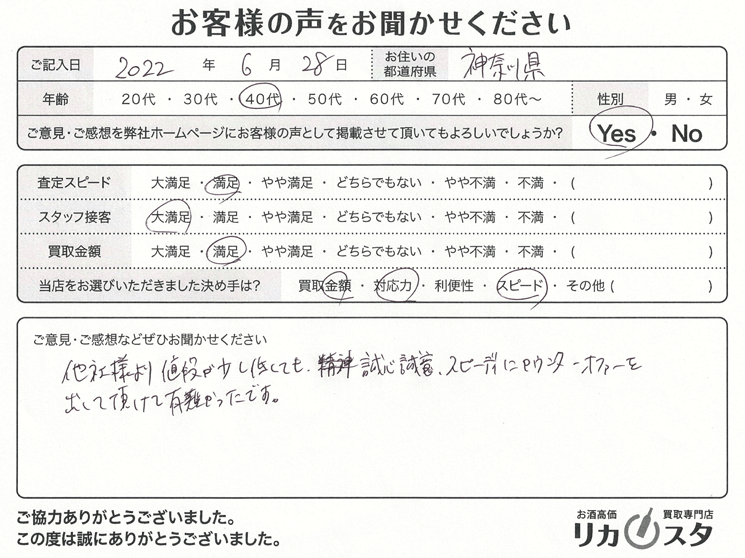 お客様の声をお聞かせください
ご記入日 2022 年 6 月 28 日 お住いの都道府県 神奈川県
年齢 20代 ・ 30代 ・ 40代 ・ 50代 ・ 60代 ・ 70代 ・ 80代〜 性別 男 ・ 女
ご意見・ご感想を弊社ホームページにお客様の声として掲載させて頂いてもよろしいでしょうか? Yes ・ No
査定スピード 大満足 ・ 満足 ・ やや満足 ・ どちらでもない ・ やや不満 ・ 不満 ・ ( )
スタッフ接客 大満足 ・ 満足 ・ やや満足 ・ どちらでもない ・ やや不満 ・ 不満 ・ ( )
買取金額 大満足 ・ 満足 ・ やや満足 ・ どちらでもない ・ やや不満 ・ 不満 ・ ( )
当店をお選びいただきました決め手は? 買取金額 ・ 対応力 ・ 利便性 ・ スピード ・ その他 ( )
ご意見・ご感想などぜひお聞かせください
他社様より値段が少し低くても、誠心誠意、スピーディにカウンターオファーを
出して頂けて有難かったです。
ご協力ありがとうございました。
この度は誠にありがとうございました。
お酒高価 買取専門店
リカスタ